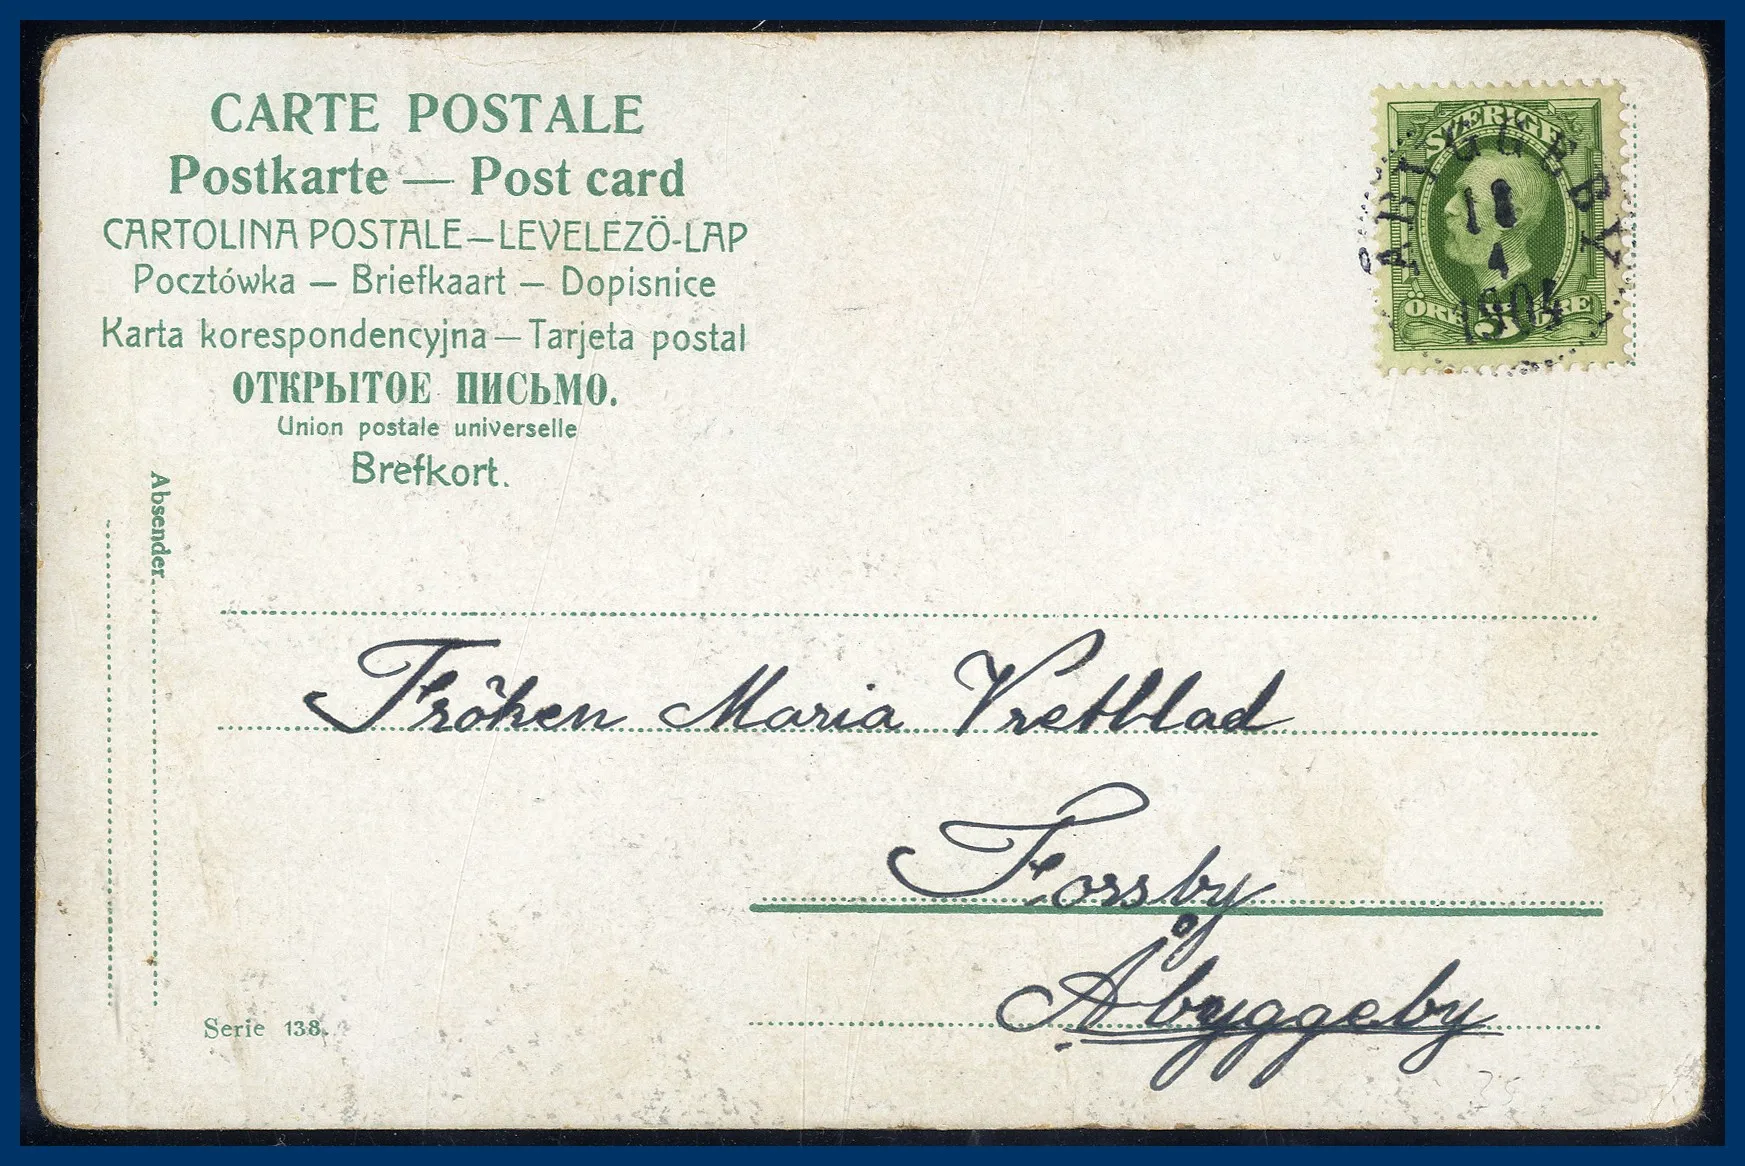 CARTE POSTALE
Postkarte — Post card
CARTOLINA POSTALE — LEVELEZÖ-LAP
Pocztówka — Briefkaart — Dopisnice
Karta korespondencyjna — Tarjeta postal
ОТКРЫТОЕ ПИСЬМО.
Union postale universelle
Brefkort.
SVERIGE
ÅBYGGEBY
18
4
1904
ÖRE 5 ÖRE
Absender
Fröken Maria Vretblad
Forssby
Åbyggeby
Serie 138.
35